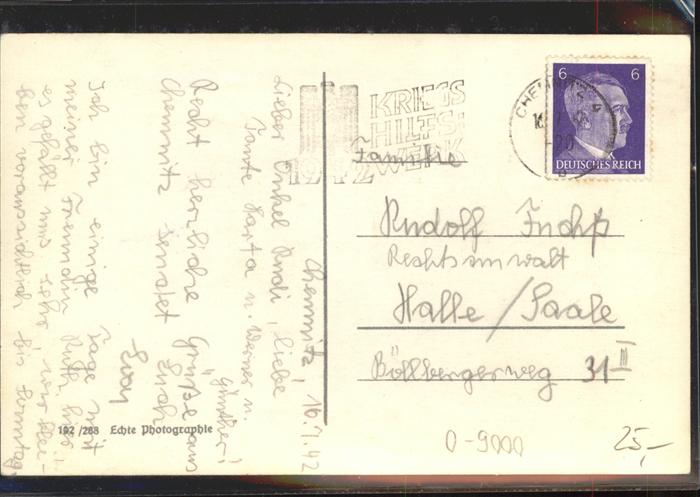 Chemnitz, 16.7.42
Lieber Onkel Rudi, liebe
Tante Marta u. Werner u.
Günther!
Recht herzliche Grüße aus
Chemnitz sendet Euch
Eva
Ich bin einige Tage mit
meiner Freundin Ruth hier
es gefällt uns sehr wir blei-
ben voraussichtlich bis Sonntag.
192/288 Echte Photographie
KRIEGS
HILFS:
WERK
1942
CHEMNITZ
6 6
DEUTSCHES REICH
Familie
Rudolf Fuchs
Rechtsanwalt
Halle/Saale
Böllbergerweg 31 III
0-9000
25,-